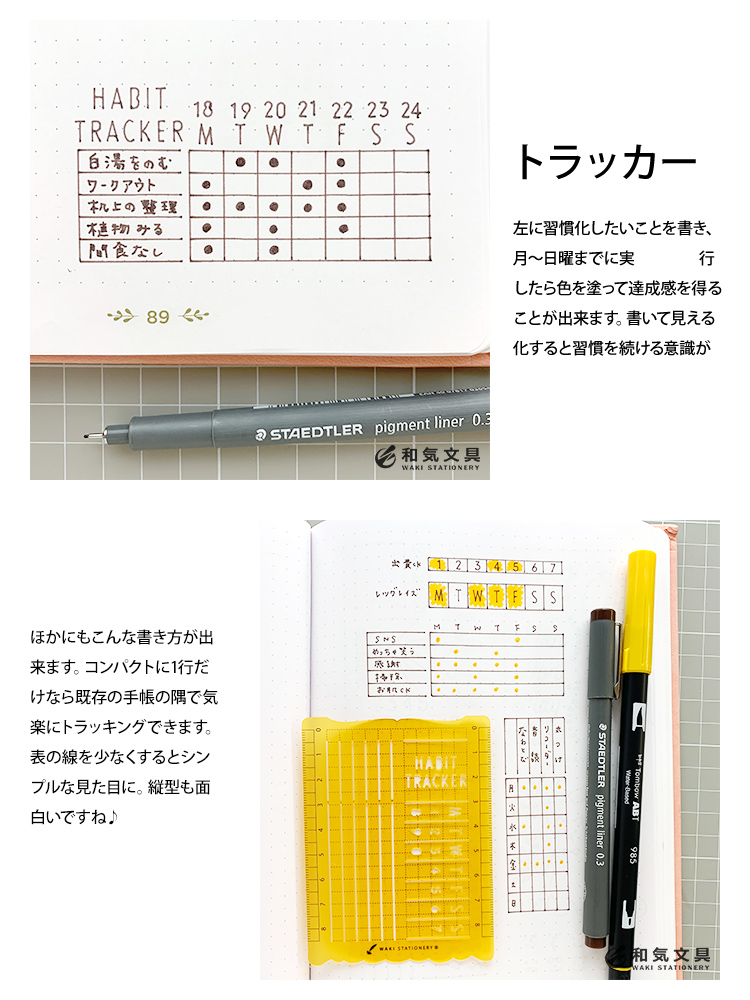 HABIT
TRACKER
18 19 20 21 22 23 24
M T W T F S S
白湯をのむ
ワークアウト
机上の整理
植物みる
間食なし
89
STAEDTLER pigment liner 0.3
和気文具
WAKI STATIONERY
トラッカー
左に習慣化したいことを書き、
月〜日曜までに実 行
したら色を塗って達成感を得る
ことが出来ます。書いて見える
化すると習慣を続ける意識が
ほかにもこんな書き方が出
来ます。コンパクトに1行だ
けなら既存の手帳の隅で気
楽にトラッキングできます。
表の線を少なくするとシン
プルな見た目に。縦型も面
白いですね♪
出費ck 1 2 3 4 5 6 7
レッグレイズ M T W T F S S
M T W T F S S
SNS
めっちゃ笑う
感謝
掃除
お肌CK
なわとび
音読
リコーダー
丸つけ
月
火
水
木
金
土
日
HABIT
TRACKER
M T W T F S S
1 2 3 4 5 6 7
WAKI STATIONERY®
STAEDTLER pigment liner 0.3
Tombow ABT
Water-Based
985
和気文具
WAKI STATIONERY